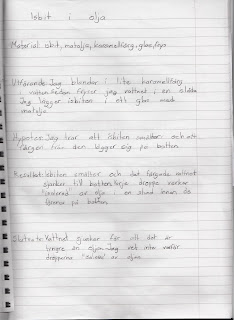 Isbit i olja
Material: isbit, matolja, karamellfärg, glas,
Utförande: Jag blandar i lite karamellfärg
i vatten. Sedan fryser jag vattnet i en
Jag lägger isbiten i ett glas med
matolja.
Hypotes: Jag tror att isbiten smälter och att
färgen från den lägger sig på botten
Resultat: Isbiten smälter och det färgade vattnet
sjunker till botten. Varje droppe verkar
"isolerad" av olja i en stund innan de
lämnar på botten.
Slutsats: Vattnet sjunker för att det är
tyngre än oljan. Jag vet inte varför
dropparna "isoleras" av oljan.